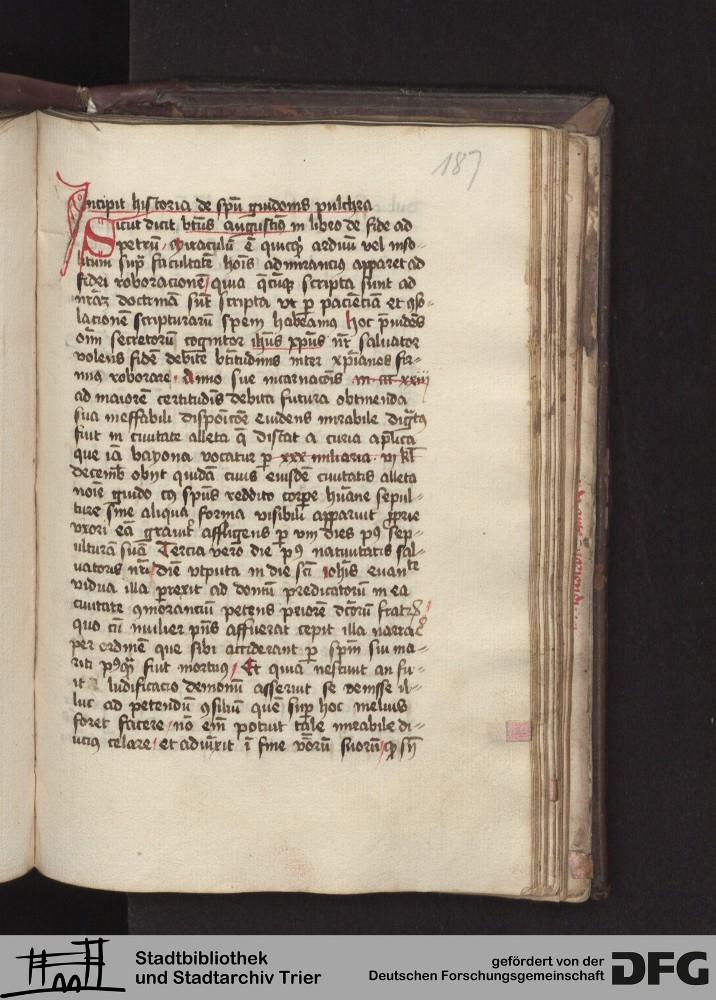 187
Incipit historia de spū guidonis pulchra
Sicut dicit btūs augustin9 in libro de fide ad
petrū / miraculū ē quicq̄ʒ arduū vel inso-
litum sup̄ facultatē hoīs admirancis apparet ad
fidei roboracionē / quia q̄cūqʒ scripta sunt ad
nr̄aʒ doctrinā sūt scripta vt p̱ pacienciā et 9so-
lacionē scripturarū spem habeam9 hoc p̄uidēs
oīm secretorū cognitor ihūs xp̄us nr̄ saluator
volens fidē debite btitudinis inter xp̄ianos fir-
mius roborare / Anno sue incarnacōis m ccc xxiii
ad maiorē certitudīs debita futura obtinenda
sua ineffabili disposicōe euidens mirabile
fuit in ciuitate alleta q̄ distat a curia ap̄lica
que iā bayona vocatur p̱ xxx miliaria vi kl
decemb̄ obijt quidā ciuis eiusdē ciuitatis alleta
noīe guido c9 spūs reddito corpe hūane sepul-
ture sine aliqua forma visibili apparuit p̱prie
vxori eā grauit̄ affligens p̱ viii dies p9 sep-
ulturā suā Tercia vero die p9 natiuitatis sal-
uatoris nr̄i / diē vtputa in die scī iohīs euante
vidua illa p̱rexit ad domū predicatorū in ea
ciuitate 9morancium petens priorē dcōrū fratrꝝ /
quo cū mulier p̄ns affuerat cepit illa narrare
per ordinē que sibi acciderant p̱ spm̄ sui ma-
riti p9q̄ʒ fuit mortuus / Et quia nesciuit an fu-
it ludificacio demonū asseruit se venisse il-
luc ad petendū 9siliū quē sup̄ hoc melius
foret facere / nō em̄ potuit tale mirabile di-
ucius celare / et adiūxit ī fine v̄borū suorū /
Stadtbibliothek
und Stadtarchiv Trier
gefördert von der
Deutschen Forschungsgemeinschaft
DFG